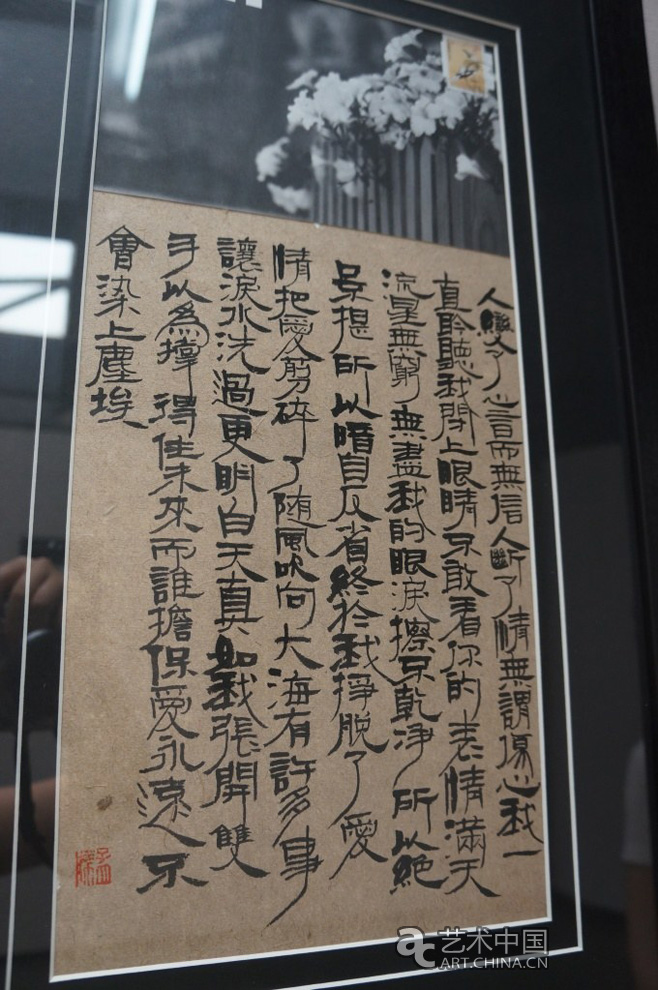 人變了心言而無信人斷了情無謂傷心我一
直聆聽我閉上眼睛不敢看你的表情滿天
流星無窮無盡我的眼淚擦不乾淨所以絕
口不提所以暗自反省終於我掙脫了愛
情把愛剪碎了随風吹向大海有許多事
讓淚水洗過更明白天真如我張開雙
手以為撑得住未來而誰擔保愛永遠不
會染上塵埃
ac 艺术中国
ART.CHINA.CN